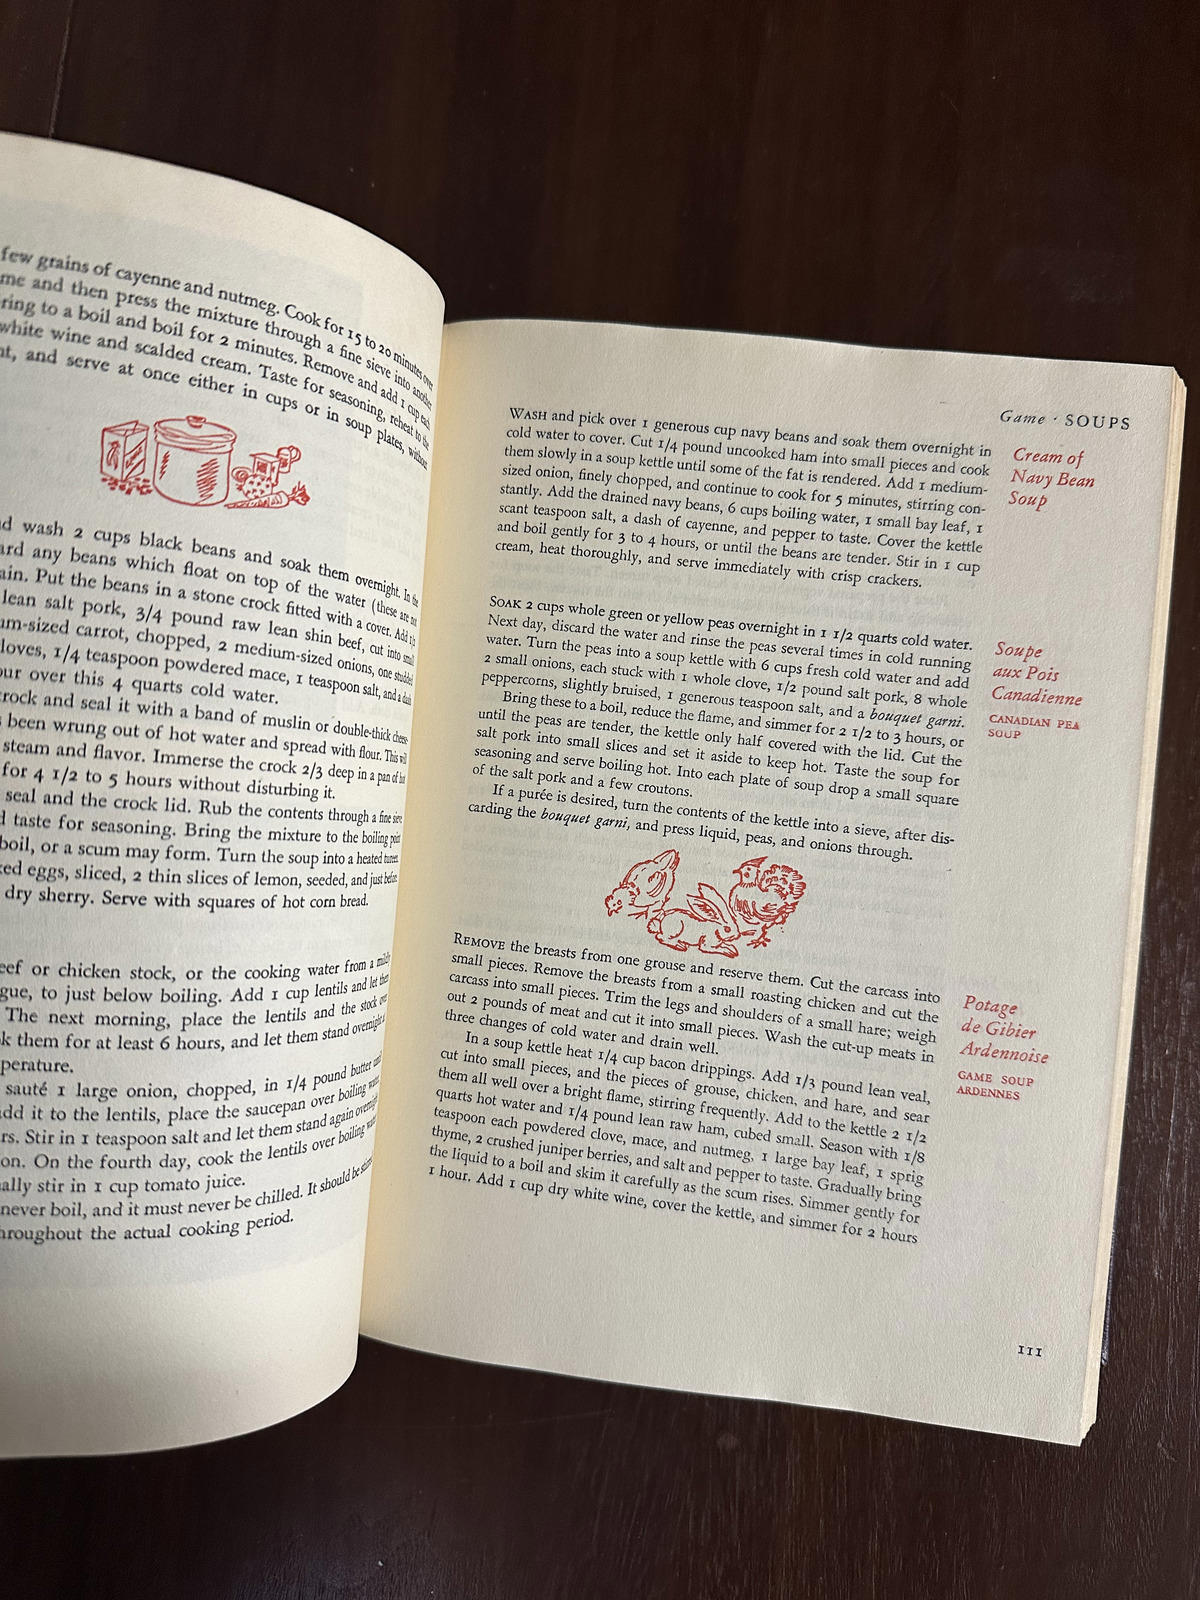 few grains of cayenne and nutmeg. Cook for 15 to 20 minutes over
me and then press the mixture through a fine sieve into another
ring to a boil and boil for 2 minutes. Remove and add 1 cup each
white wine and scalded cream. Taste for seasoning, reheat to the
and serve at once either in cups or in soup plates, without
wash 2 cups black beans and soak them overnight. In the
ard any beans which float on top of the water (these are not
ain. Put the beans in a stone crock fitted with a cover. Add
lean salt pork, 3/4 pound raw lean shin beef, cut into small
um-sized carrot, chopped, 2 medium-sized onions, one studded
loves, 1/4 teaspoon powdered mace, 1 teaspoon salt, and a dash
ur over this 4 quarts cold water.
rock and seal it with a band of muslin or double-thick cheese-
been wrung out of hot water and spread with flour. This will
steam and flavor. Immerse the crock 2/3 deep in a pan of hot
for 4 1/2 to 5 hours without disturbing it.
seal and the crock lid. Rub the contents through a fine sieve
taste for seasoning. Bring the mixture to the boiling point
boil, or a scum may form. Turn the soup into a heated tureen
ed eggs, sliced, 2 thin slices of lemon, seeded, and just before
dry sherry. Serve with squares of hot corn bread.
eef or chicken stock, or the cooking water from a mildly
gue, to just below boiling. Add 1 cup lentils and let them
The next morning, place the lentils and the stock over
k them for at least 6 hours, and let them stand overnight
perature.
sauté 1 large onion, chopped, in 1/4 pound butter
add it to the lentils, place the saucepan over boiling water
rs. Stir in 1 teaspoon salt and let them stand again overnight
on. On the fourth day, cook the lentils over boiling water
ally stir in 1 cup tomato juice.
never boil, and it must never be chilled. It should be
hroughout the actual cooking period.
Game · SOUPS
Cream of
Navy Bean
Soup
WASH and pick over 1 generous cup navy beans and soak them overnight in
cold water to cover. Cut 1/4 pound uncooked ham into small pieces and cook
them slowly in a soup kettle until some of the fat is rendered. Add 1 medium-
sized onion, finely chopped, and continue to cook for 5 minutes, stirring con-
stantly. Add the drained navy beans, 6 cups boiling water, 1 small bay leaf, 1
scant teaspoon salt, a dash of cayenne, and pepper to taste. Cover the kettle
and boil gently for 3 to 4 hours, or until the beans are tender. Stir in 1 cup
cream, heat thoroughly, and serve immediately with crisp crackers.
Soupe
aux Pois
Canadienne
CANADIAN PEA
SOUP
SOAK 2 cups whole green or yellow peas overnight in 1 1/2 quarts cold water.
Next day, discard the water and rinse the peas several times in cold running
water. Turn the peas into a soup kettle with 6 cups fresh cold water and add
2 small onions, each stuck with 1 whole clove, 1/2 pound salt pork, 8 whole
peppercorns, slightly bruised, 1 generous teaspoon salt, and a bouquet garni.
Bring these to a boil, reduce the flame, and simmer for 2 1/2 to 3 hours, or
until the peas are tender, the kettle only half covered with the lid. Cut the
salt pork into small slices and set it aside to keep hot. Taste the soup for
seasoning and serve boiling hot. Into each plate of soup drop a small square
of the salt pork and a few croutons.
If a purée is desired, turn the contents of the kettle into a sieve, after dis-
carding the bouquet garni, and press liquid, peas, and onions through.
Potage
de Gibier
Ardennoise
GAME SOUP
ARDENNES
REMOVE the breasts from one grouse and reserve them. Cut the carcass into
small pieces. Remove the breasts from a small roasting chicken and cut the
carcass into small pieces. Trim the legs and shoulders of a small hare; weigh
out 2 pounds of meat and cut it into small pieces. Wash the cut-up meats in
three changes of cold water and drain well.
In a soup kettle heat 1/4 cup bacon drippings. Add 1/3 pound lean veal,
cut into small pieces, and the pieces of grouse, chicken, and hare, and sear
them all well over a bright flame, stirring frequently. Add to the kettle 2 1/2
quarts hot water and 1/4 pound lean raw ham, cubed small. Season with 1/8
teaspoon each powdered clove, mace, and nutmeg, 1 large bay leaf, 1 sprig
thyme, 2 crushed juniper berries, and salt and pepper to taste. Gradually bring
the liquid to a boil and skim it carefully as the scum rises. Simmer gently for
1 hour. Add 1 cup dry white wine, cover the kettle, and simmer for 2 hours
111